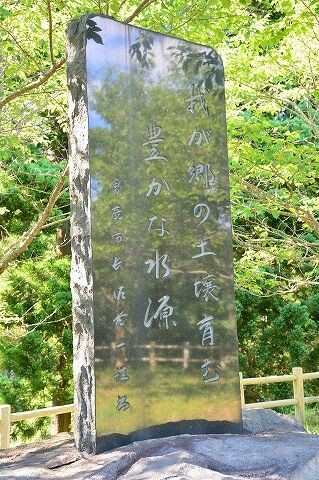 我が郷の土壌育む
豊かな水源
市長